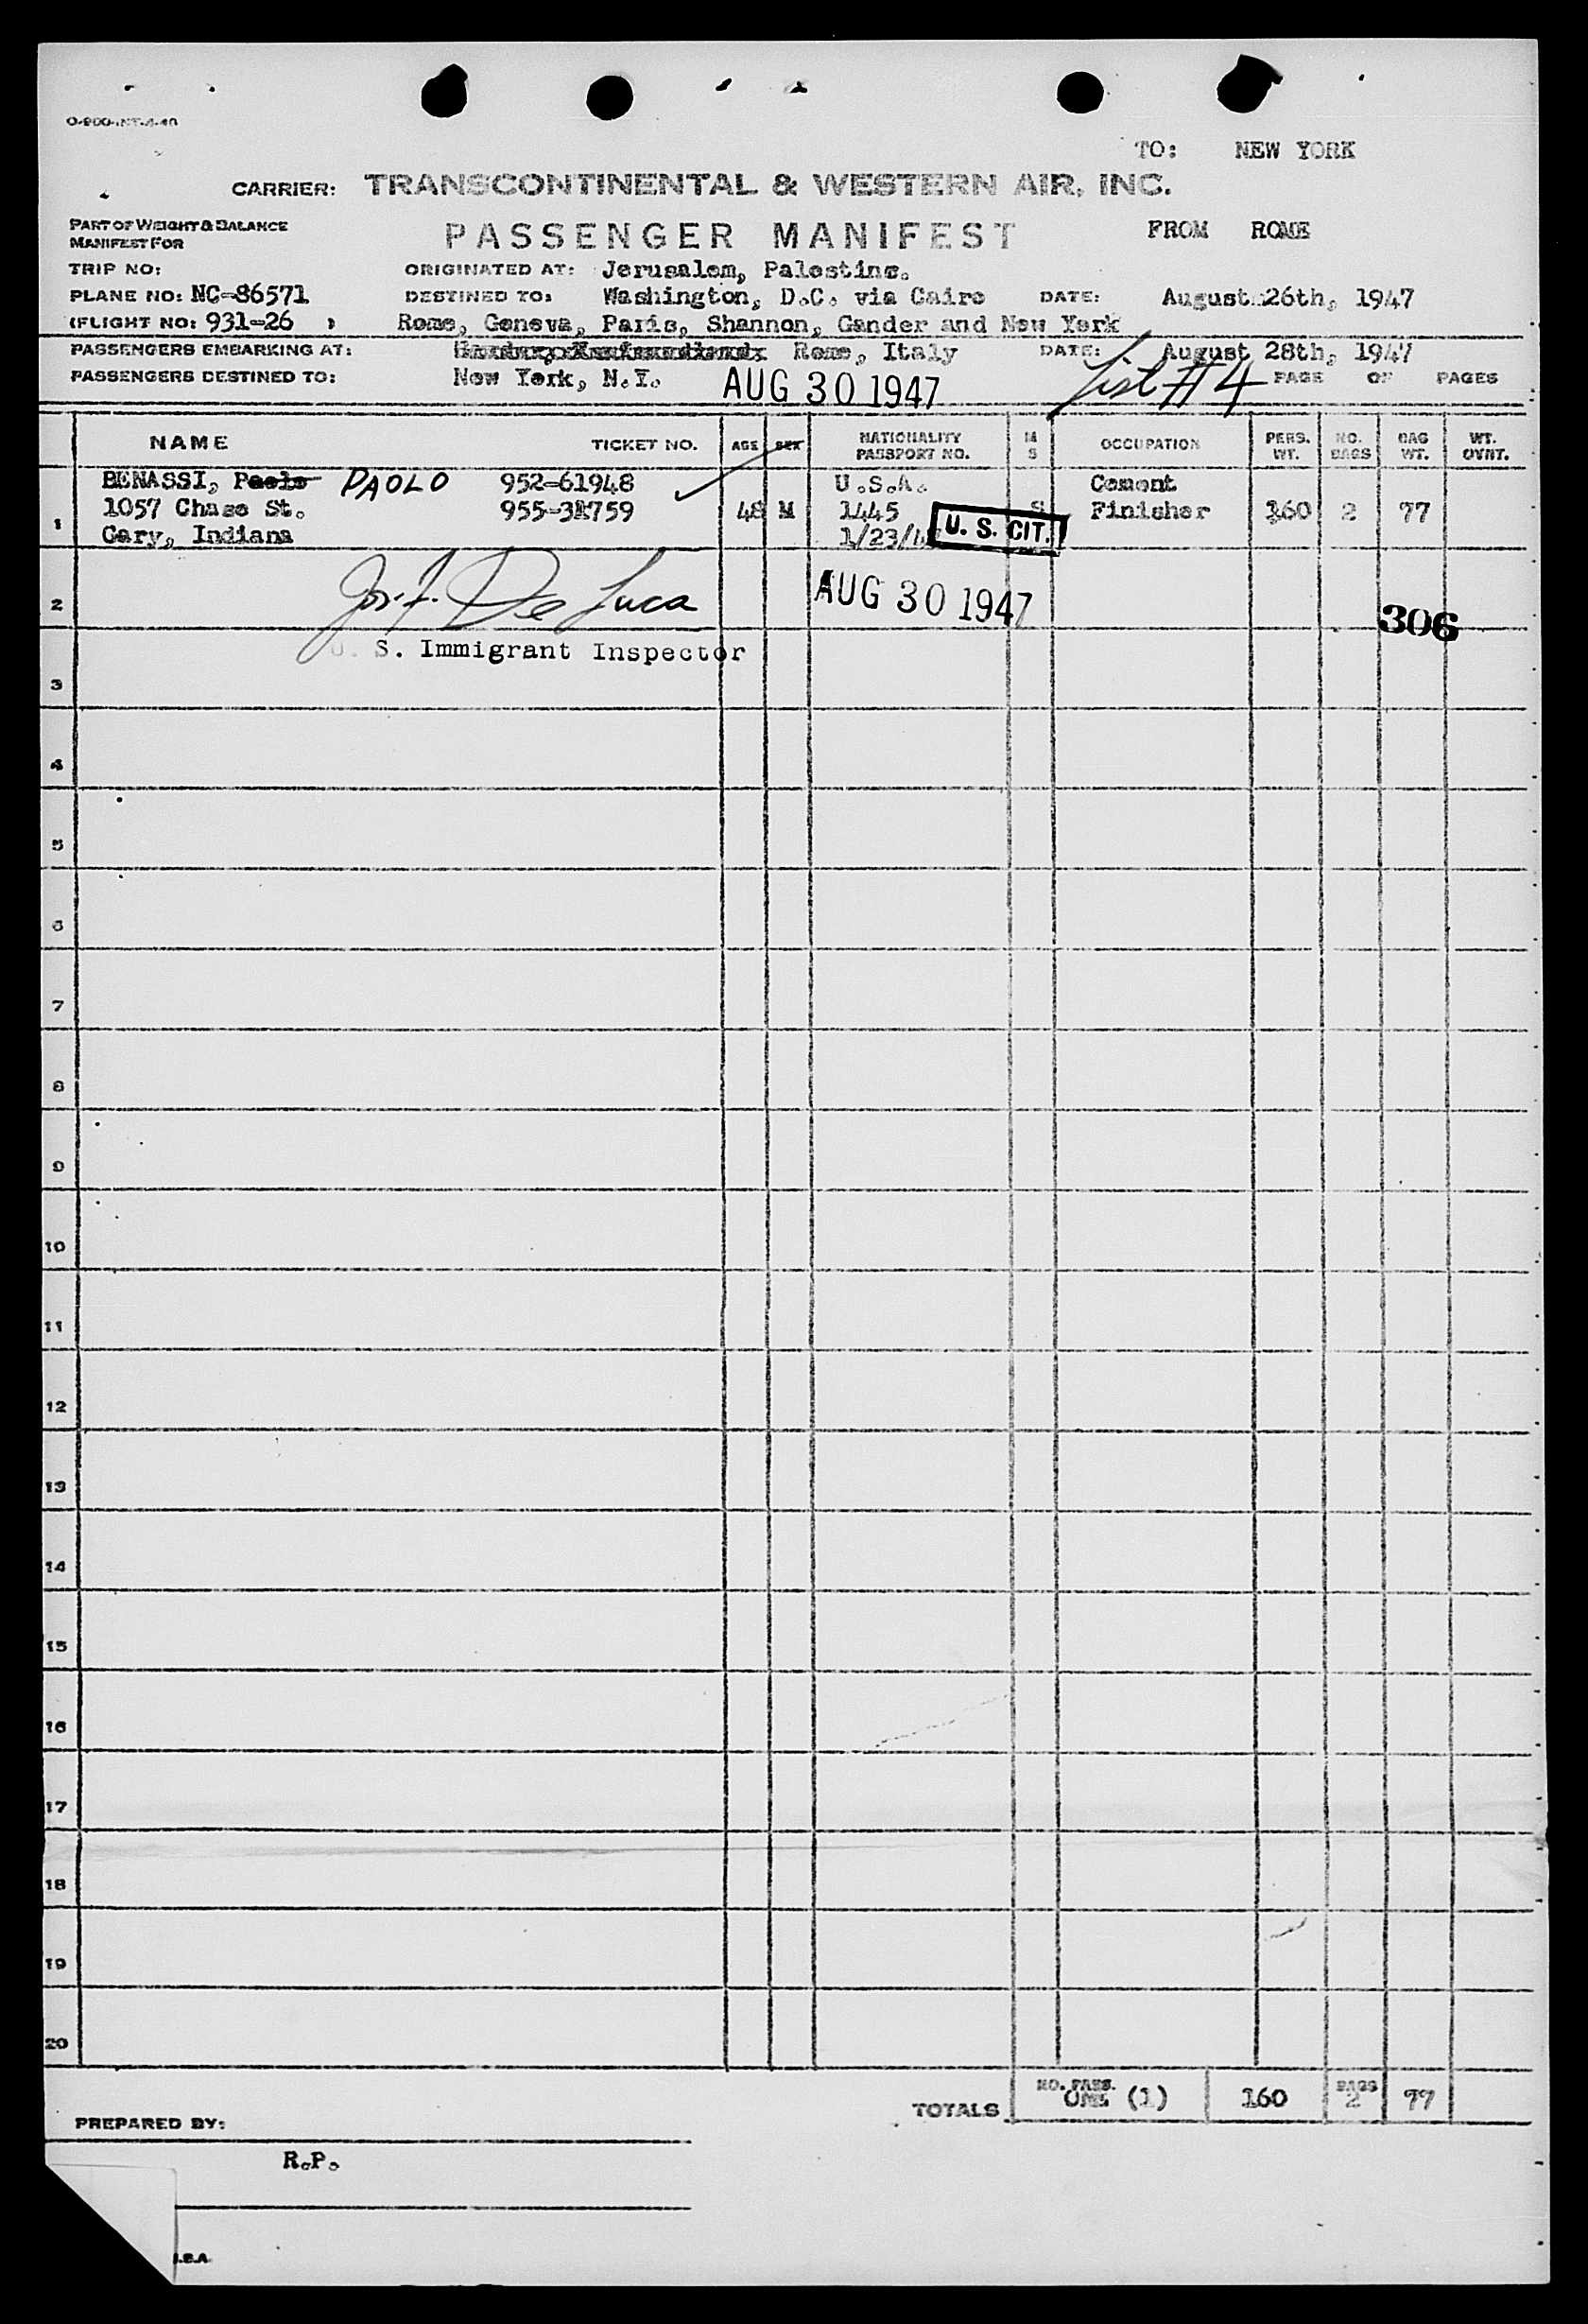 TO: NEW YORK
CARRIER: TRANSCONTINENTAL & WESTERN AIR, INC.
PART OF WEIGHT & BALANCE
MANIFEST FOR
PASSENGER MANIFEST
FROM ROME
TRIP NO:
ORIGINATED AT: Jerusalem, Palestine.
PLANE NO: NC-86571
DESTINED TO: Washington, D.C. via Cairo
DATE: August 26th, 1947
(FLIGHT NO: 931-26 )
Rome, Geneva, Paris, Shannon, Gander and New York
PASSENGERS EMBARKING AT: Rome, Italy
DATE: August 28th, 1947
PASSENGERS DESTINED TO: New York, N.Y.
AUG 30 1947
List #4
PAGE OF PAGES
NAME TICKET NO. AGE SEX NATIONALITY PASSPORT NO. M S OCCUPATION PERS. WT. NO. BAGS BAG WT. WT. OVNT.
BENASSI, Paolo PAOLO 952-61948 U.S.A. Cement
1 1057 Chase St. 48 M 1445 S Finisher 160 2 77
Gary, Indiana U. S. CIT.
2 Jos. F. De Luca AUG 30 1947 306
U. S. Immigrant Inspector
3
4
5
6
7
8
9
10
11
12
13
14
15
16
17
18
19
20
TOTALS NO. PASS. ONE (1) 160 BAGS 2 77
PREPARED BY:
R.P.